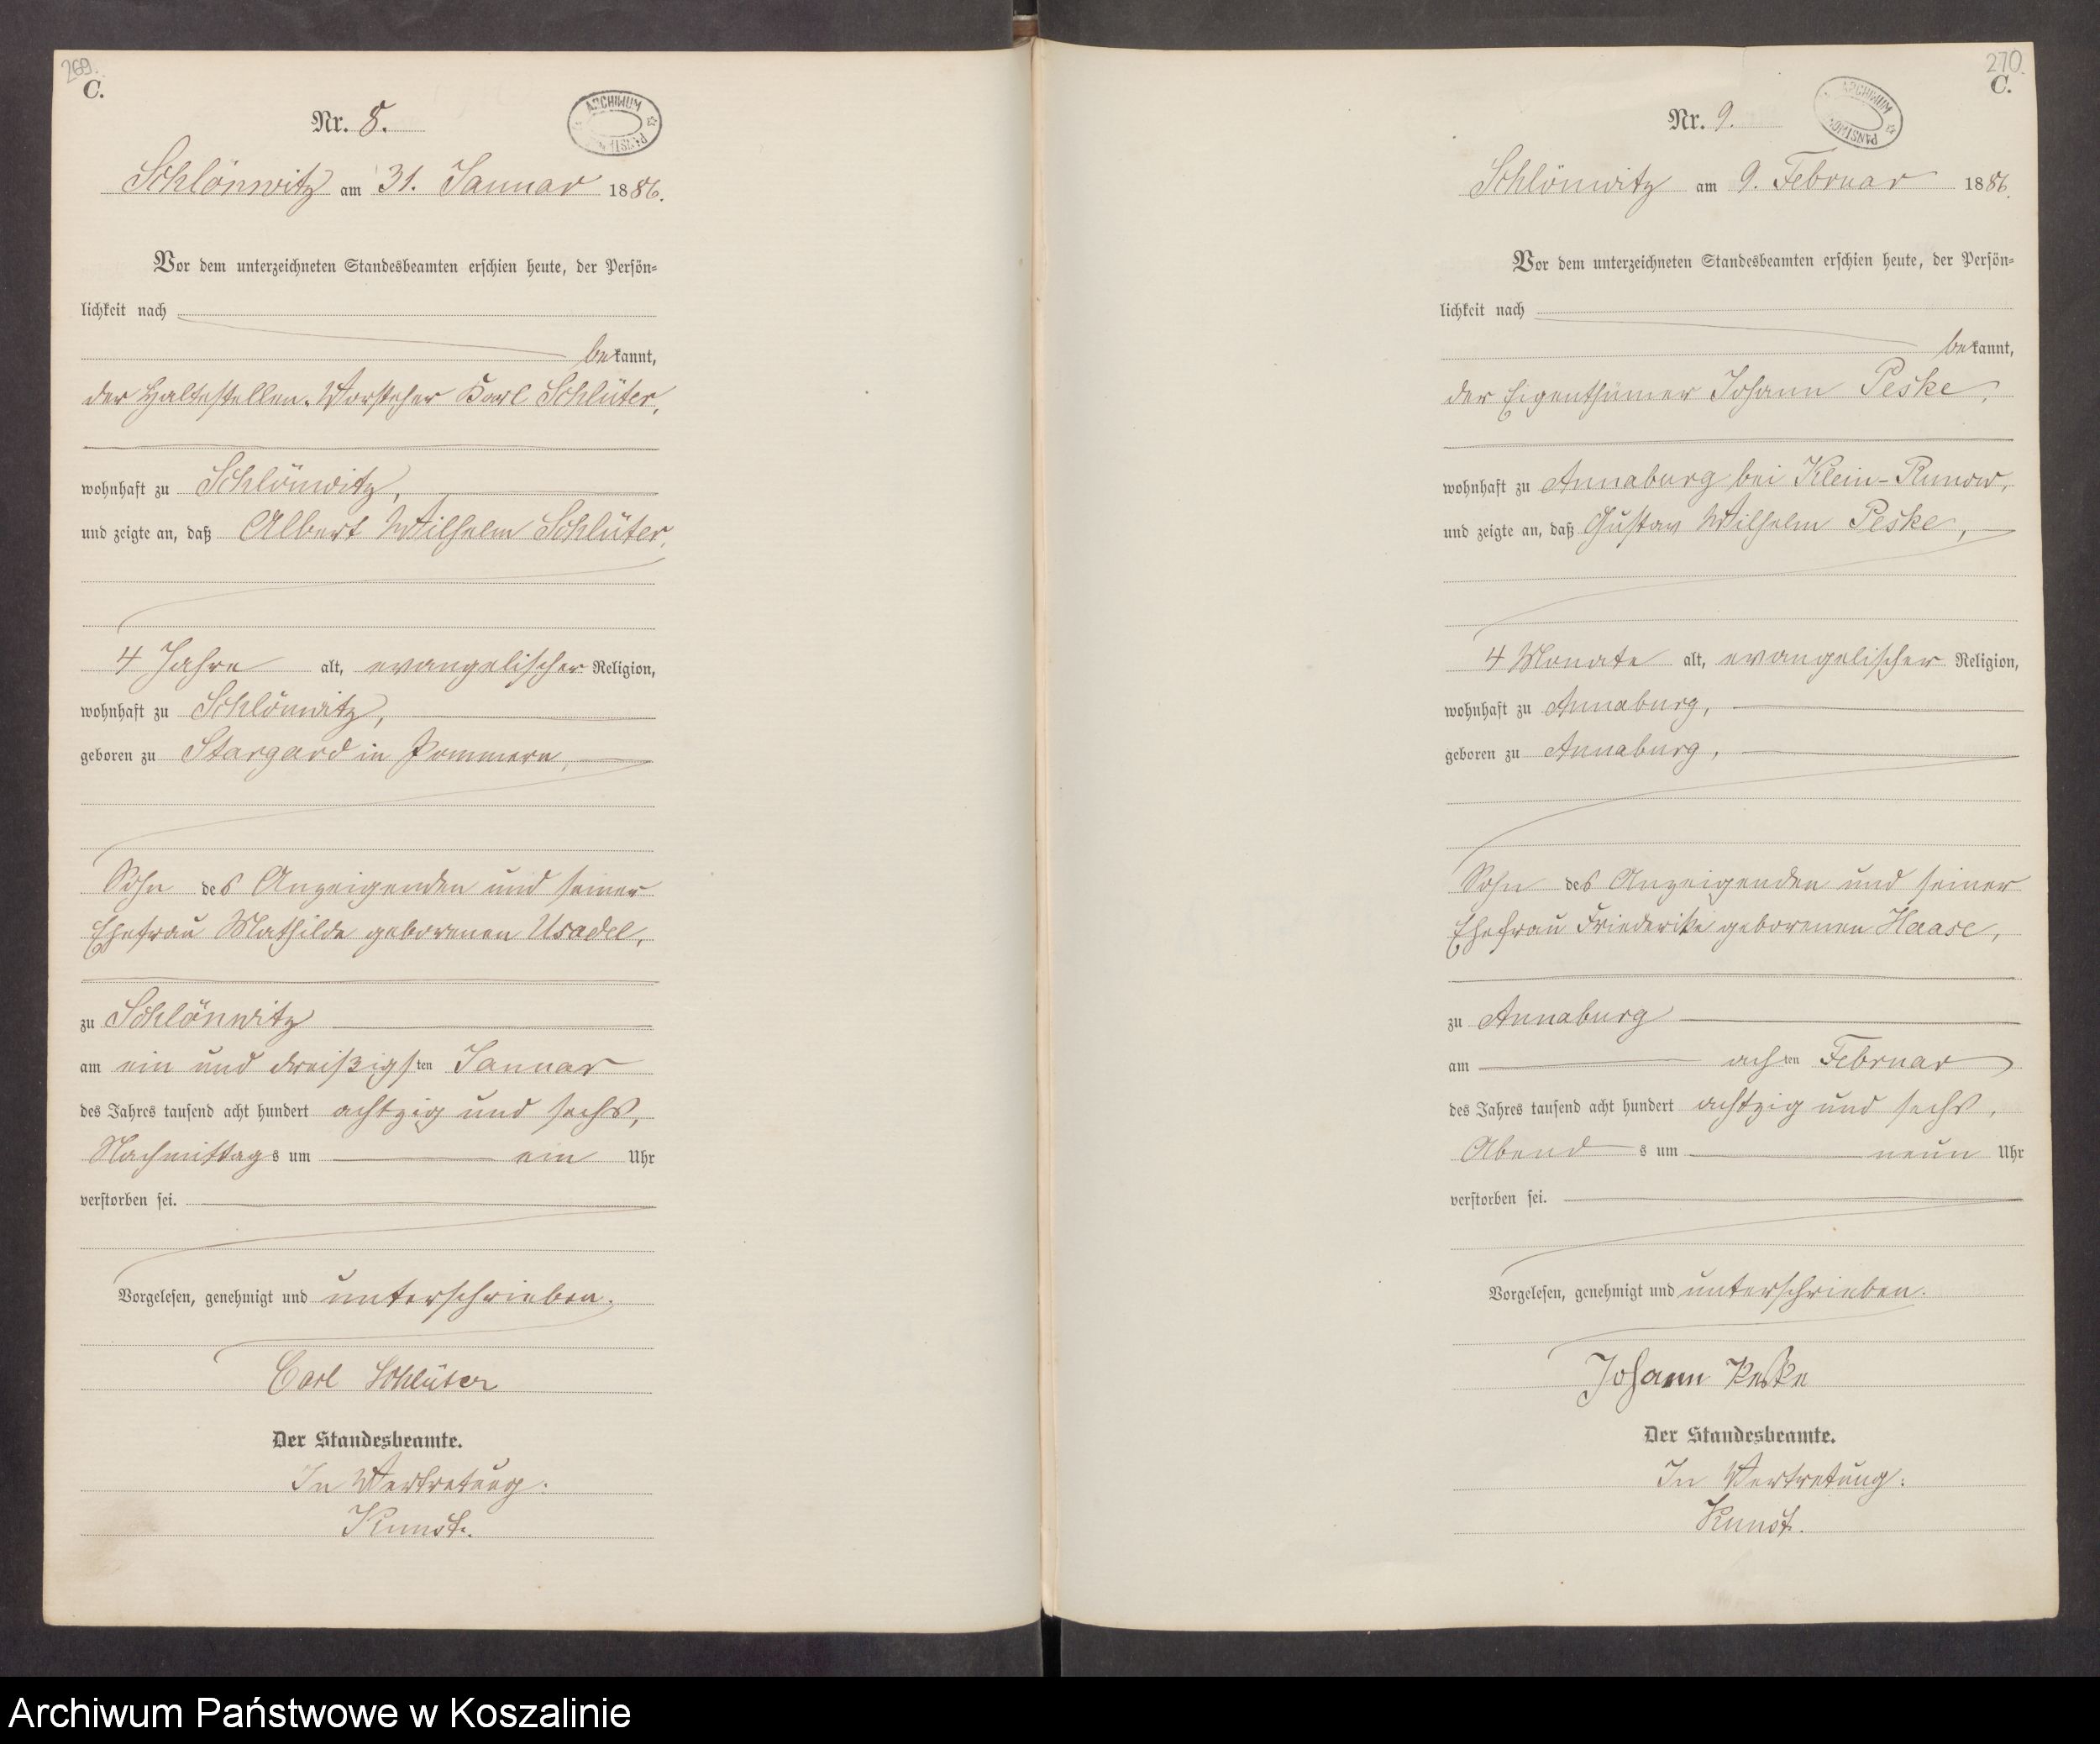 269.
C.
Nr. 8.
ARCHIWUM
Schlönwitz am 31. Januar 1886.
Vor dem unterzeichneten Standesbeamten erschien heute, der Persön=
lichkeit nach
bekannt,
der Haltestellen-Vorsteher Karl Schlüter,
wohnhaft zu Schlönwitz,
und zeigte an, daß Albert Wilhelm Schlüter,
4 Jahre alt, evangelischer Religion,
wohnhaft zu Schlönwitz,
geboren zu Stargard in Pommern,
Sohn des Anzeigenden und seiner
Ehefrau Mathilde geborenen Usadel,
zu Schlönwitz
am ein und dreißigsten Januar
des Jahres tausend acht hundert achtzig und sechs,
Nachmittags um ein Uhr
verstorben sei.
Vorgelesen, genehmigt und unterschrieben.
Carl Schlüter
Der Standesbeamte.
In Vertretung:
Kunst.
270.
C.
Nr. 9.
ARCHIWUM
Schlönwitz am 9. Februar 1886.
Vor dem unterzeichneten Standesbeamten erschien heute, der Persön=
lichkeit nach
bekannt,
der Eigenthümer Johann Peske,
wohnhaft zu Annaburg bei Klein-Runow,
und zeigte an, daß Gustav Wilhelm Peske,
4 Monate alt, evangelischer Religion,
wohnhaft zu Annaburg,
geboren zu Annaburg,
Sohn des Anzeigenden und seiner
Ehefrau Friederike geborenen Haase,
zu Annaburg
am achten Februar
des Jahres tausend acht hundert achtzig und sechs,
Abends um neun Uhr
verstorben sei.
Vorgelesen, genehmigt und unterschrieben.
Johann Peske
Der Standesbeamte.
In Vertretung:
Kunst.
Archiwum Państwowe w Koszalinie